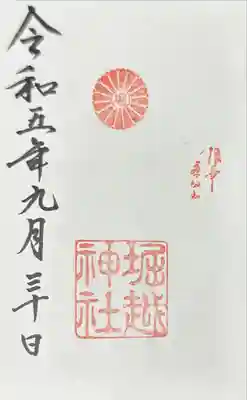 堀越
神社
令和五年九月三十日